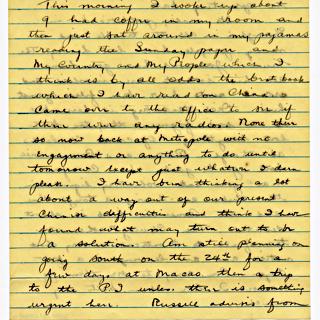 This morning I woke up about
9 had coffee in my room and
then just sat around in my pajamas
reading the Sunday paper and
My Country and My People which I
think is by all odds the best book
which I have read on China
Came over to the office to see if
there were any radios. None there
so now back at Metropole with no
engagement or anything to do until
tomorrow except just whatever I darn
please. I have been thinking a lot
about a way out of our present
Chinese difficulties and think I have
found what may turn out to be
a solution. Am still planning on
going south on the 24th for a
few days at Macao then a trip
to the P.I unless there is something
urgent here. Russell advises from